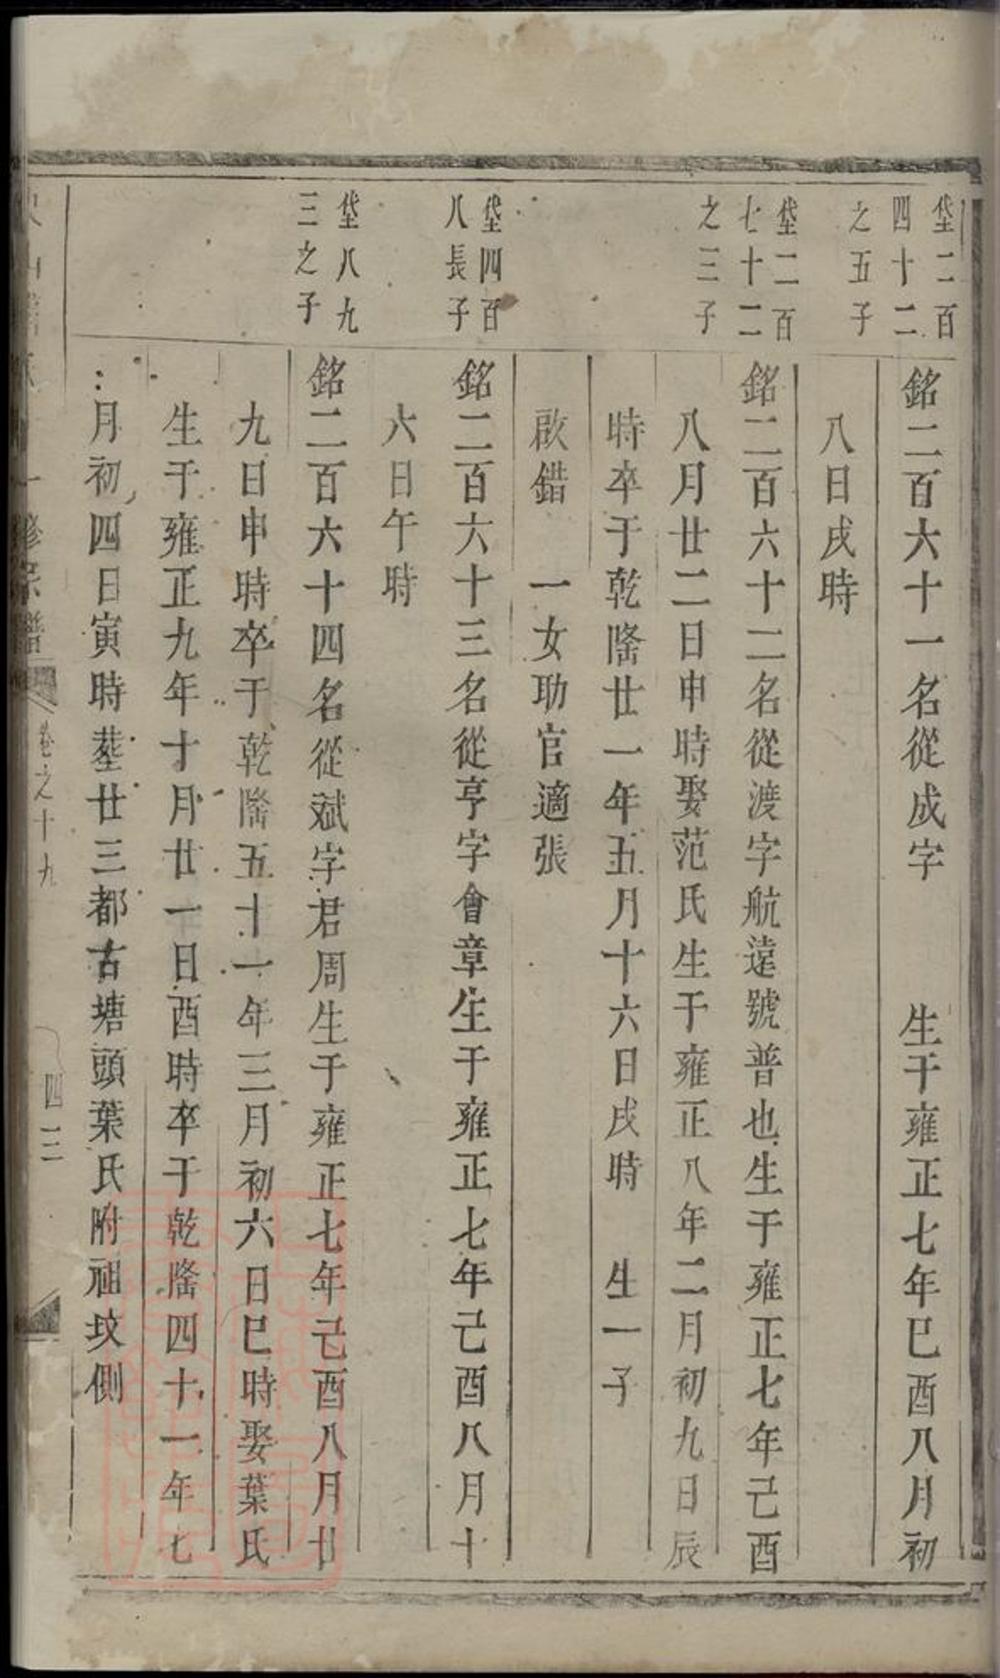 垈二百
四十二
之五子
銘二百六十一名從成字 生于雍正七年巳酉八月初
八日戌時
垈二百
七十二
之三子
銘二百六十二名從渡字航遠號普也生于雍正七年己酉
八月廿二日申時娶范氏生于雍正八年二月初九日辰
時卒于乾隆廿一年五月十六日戌時 生一子
啟錯 一女功官適張
垈四百
八長子
銘二百六十三名從亨字會章生于雍正七年己酉八月十
六日午時
垈八九
三之子
銘二百六十四名從斌字君周生于雍正七年己酉八月廿
九日申時卒于乾隆五十一年三月初六日巳時娶葉氏
生于雍正九年十月廿一日酉時卒于乾隆四十一年七
月初四日寅時塟廿三都古塘頭葉氏附祖坟側
修宗譜
卷之十九
四三